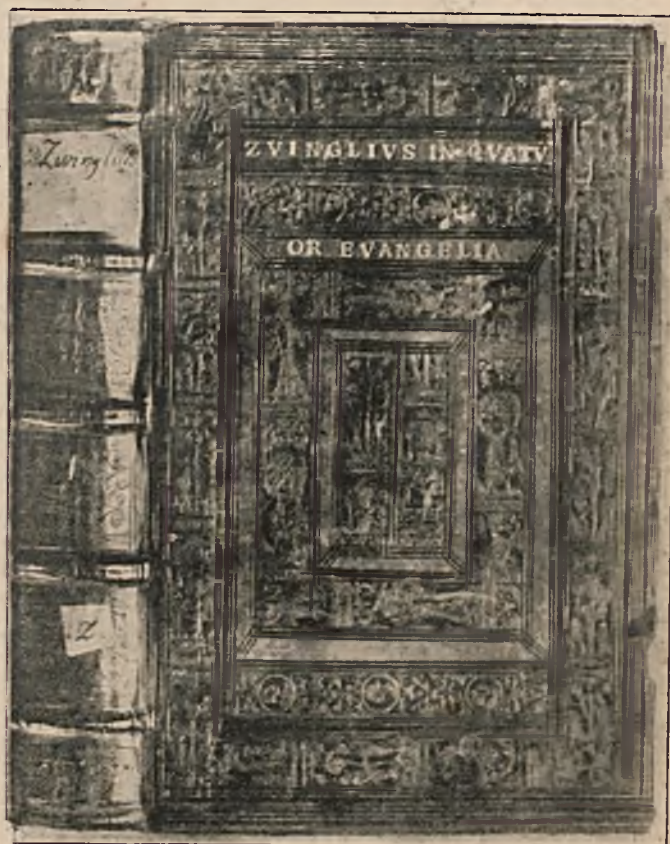 Zwinglius
ZVINGLIVS IN QVATV
OR EVANGELIA
Z